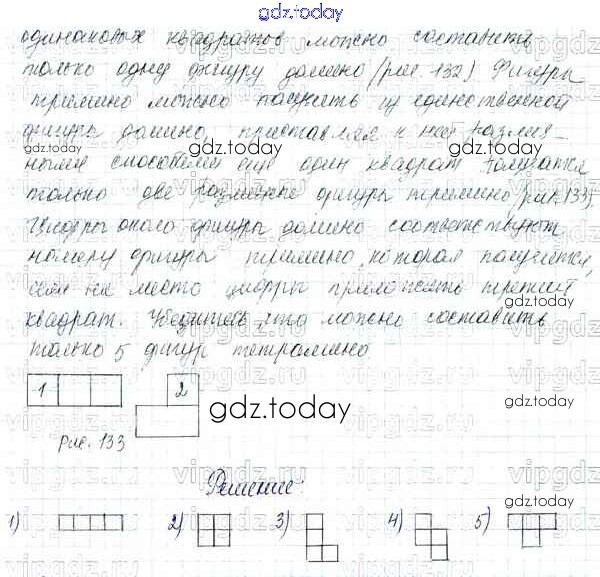 gdz.today
одинаковых квадратов можно составить
только одну фигуру домино (рис. 132) Фигуры
тримино можно получить из единственной
фигуры домино, приставляя к ней различ-
ными способами еще один квадрат. Получатся
только две различные фигуры тримино (рис. 133).
Цифры около фигуры домино соответствуют
номеру фигуры тримино, которая получится,
если на место цифры приложить третий
квадрат. Убедитесь, что можно составить
только 5 фигур тетрамино.
1 2
gdz.today
Рис. 133
Решение:
1) 2) 3) 4) 5)